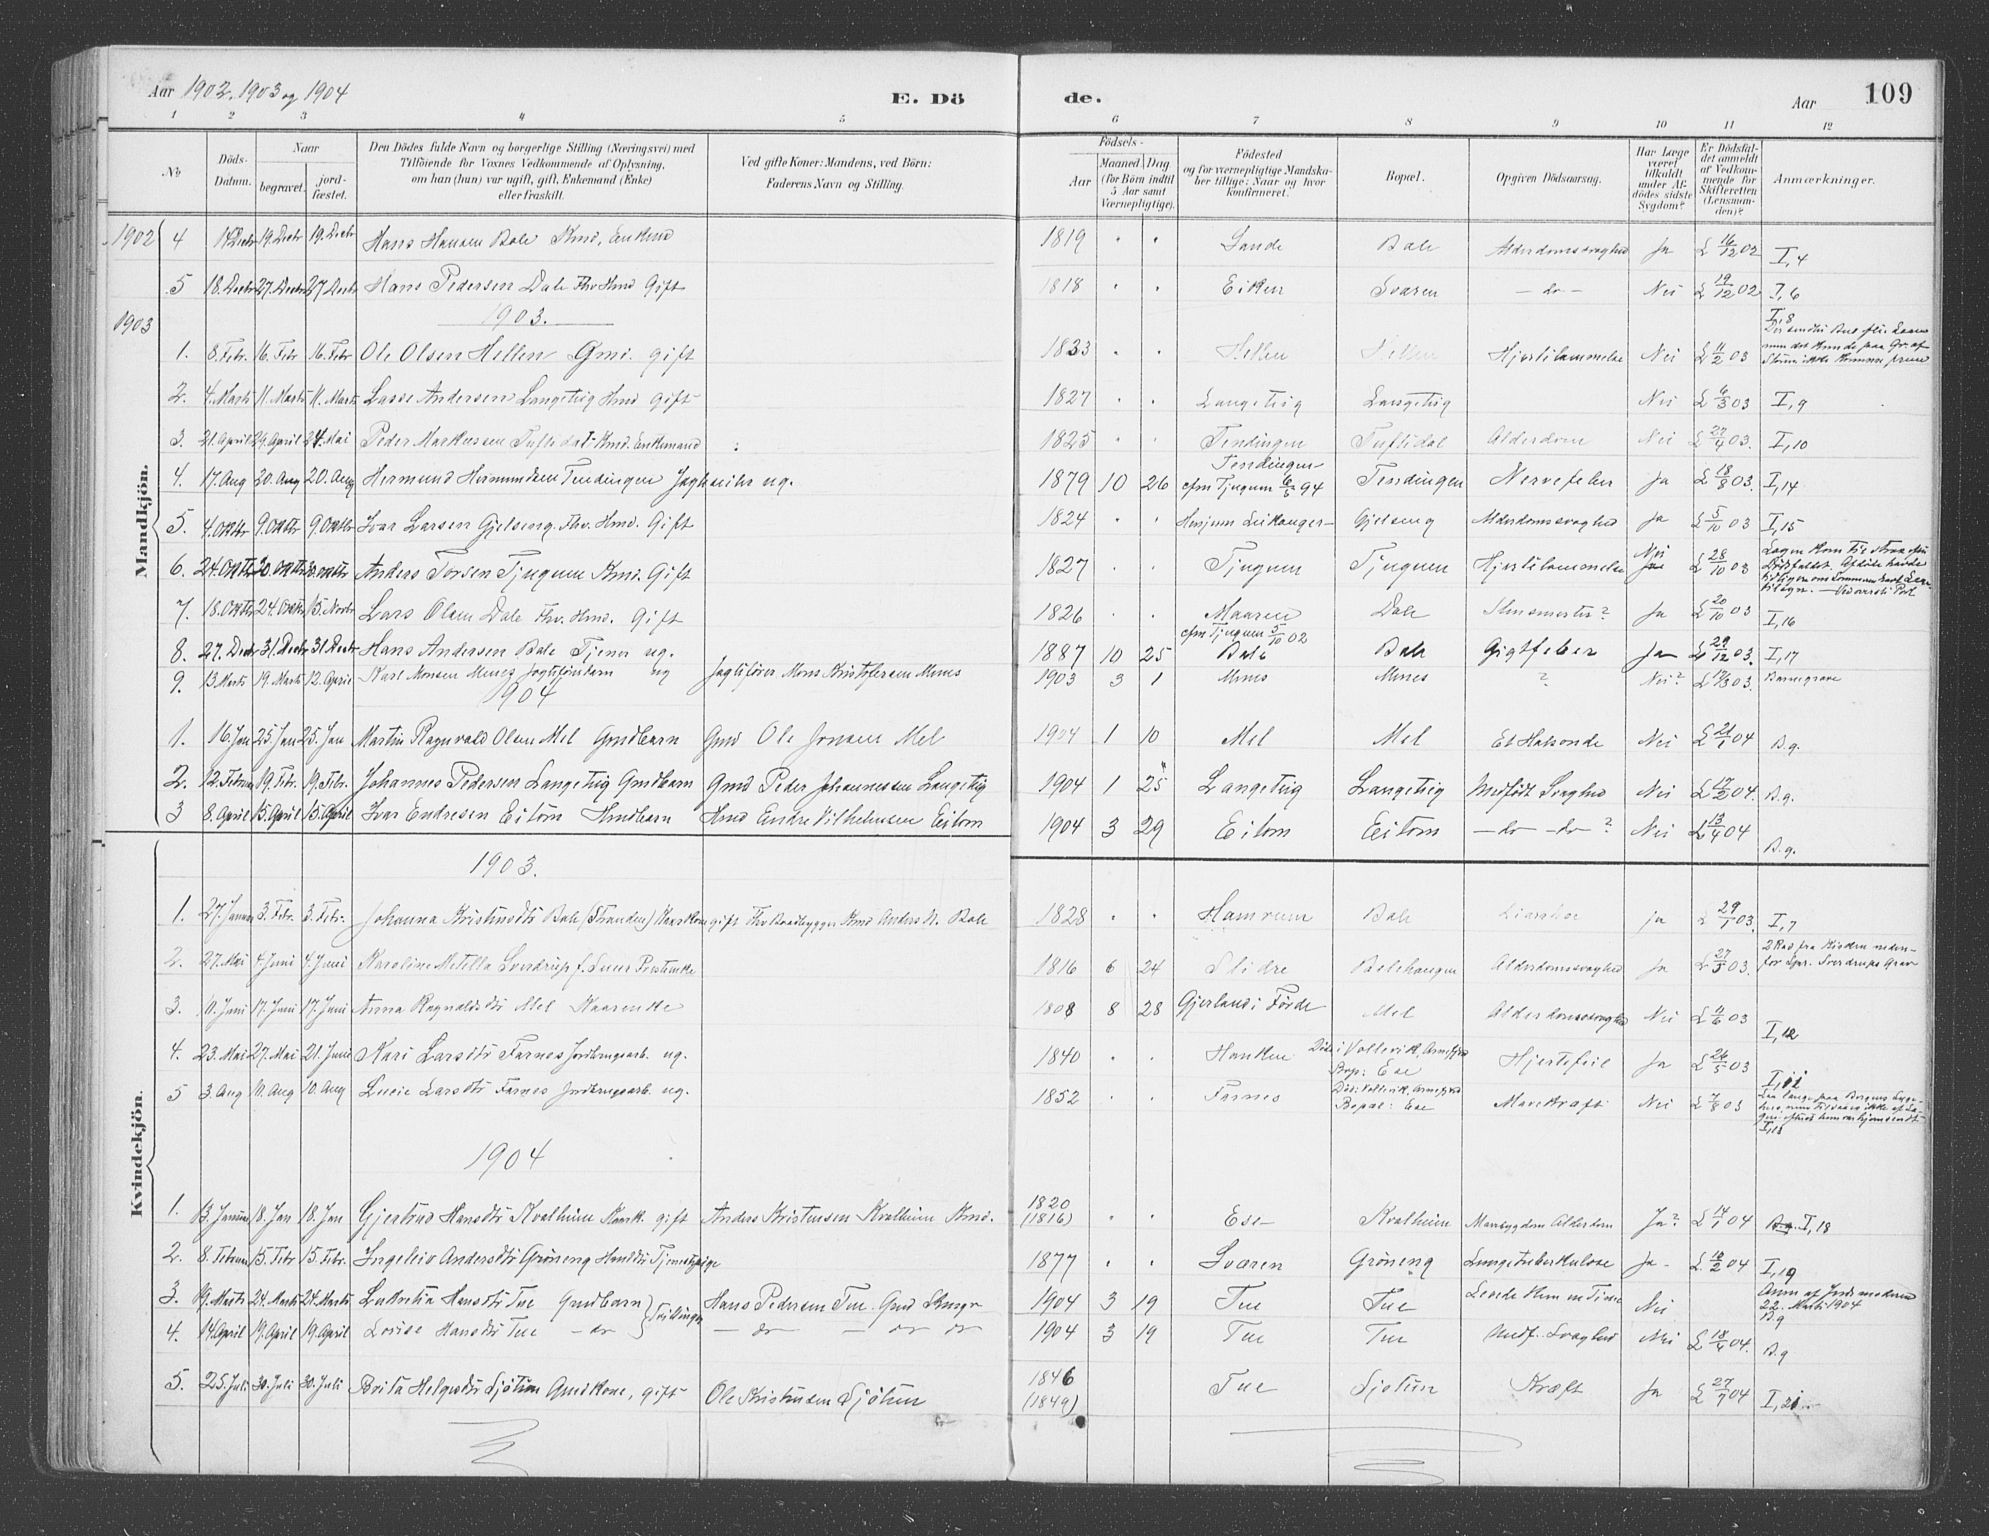 Aar 1902, 1903 og 1904
E. Dö
de.
Aar
109
1 2 3 4 5 6 7 8 9 10 11 12
No
Döds-Datum.
Naar
begravet.
jord-fæstet.
Den Dödes fulde Navn og borgerlige Stilling (Næringsvei) med
Tilföiende for Voxnes Vedkommende af Oplysning,
om han (hun) var ugift, gift, Enkemand (Enke)
eller fraskilt.
Ved gifte Koner: Mandens, ved Börn:
Faderens Navn og Stilling.
Födsels-
Aar
Maaned Dag
(for Börn indtil
5 Aar samt
Værnepligtige).
Födested
og for værnepligtige Mandska-
ber tillige: Naar og hvor
konfirmeret.
Bopæl.
Opgiven Dödsaarsag.
Har Læge
været
tilkaldt
under Af-
dödes sidste
Sygdom?
Er Dödsfal-
det anmeldt
af Vedkom-
mende for
Skifteretten
(Lensman-
den)?
Anmærkninger.
Mandkjön.
1902 4 14 Decbr 19. Decbr 19. Decbr Hans Hansen Bale Kmd, Enkmd 1819 " " Sande Bale Alderdomssvaghed Ja L 16/12 02 I, 4
5 18. Decbr 27. Decbr 27 Decbr Hans Pedersen Dale Fhv Hmd Gift 1818 " " Eiken Svaren — do — Nei L 19/12 02 I, 6
1903
1903.
1. 8. Febr. 16. Febr 16. Febr Ole Olsen Hellen Gmd. gift 1833 " " Hellen Hellen Hjertelammelse Nei L 11/2 03 I, 8
2. 4. Marts 11. Marts 11. Marts Lasse Andersen Langeteig Hmd gift 1827 " " Langeteig Langeteig Nei L 6/3 03 I, 9
3. 21. April 29. April 24. Mai Peder Markussen Tuftedal Kmd. Enkemand 1825 " " Tendingen Tuftedal Alderdom Nei L 27/4 03. I, 10
4. 17. Aug 20. Aug 20. Aug Hermund Hermundsen Tendingen ug. 1879 10 26 Tendingen cfm Tjugum 6/5 94 Tendingen Nervefeber Ja L 18/8 03. I, 14
5. 4. Oktbr 9. Oktbr 9. Oktbr Ivar Larsen Gjelseng Fhv. Hmd. Gift 1824 " " Husjum Leikanger Gjelseng Alderdomssvaghed Ja L 5/10 03 I, 15
6. 24. Oktbr 30. Oktbr 30. Oktbr Anders Torsen Tjugum Kmd. Gift 1827 " " Tjugum Tjugum Hjertelammelse Nei L 28/10 03
7. 18. Oktbr 24. Oktbr 15. Novbr Lars Olsen Dale Fhv. Hmd. Gift 1826 " " Maaren Dale ? Ja L 20/10 03 I, 16
8. 27. Decbr 31. Decbr 31. Decbr Hans Andersen Bale Tjener ug. 1887 10 25 cfm Tjugum 5/10 02 Bale Bale Gigtfeber Ja L 29/12 03. I, 17
9. 13. Marts 19. Marts 12. April Karl Monsen Menes ug Mons Kristofersen Menes 1903 3 1 Menes Menes ? Nei? L 03. Barnegrave
1904
1. 16. Jan 25. Jan 25. Jan Martin Ragnvald Olsen Mel Gmdbarn Gmd Ole Jonsen Mel 1904 1 10 Mel Mel Nei L 21/1 04 B.g.
2. 12. Februar 19. Febr. 19. Febr. Johannes Pedersen Langeteig Gmdbarn Gmd Peder Johannessen Langeteig 1904 1 25 Langeteig Langeteig Medfödt Svaghed Nei L 17/2 04. B.g.
3 8. April 15. April 15. April Ivar Endresen Eitom Hmdbarn Hmd Endre Vilhelmsen Eitom 1904 3 29 Eitom Eitom — do — do — ? Nei L 13/4 04 B.g.
Kvindekjön.
1903.
1. 27. Januar 3. Febr. 3. Febr. Johanna Kristensdtr Bale (Stranden) gift Fhv Baadbygger Kmd Anders N. Bale 1828 " " Hamrum Bale ja L 29/1 03. I, 7
2. 27. Mai 4. Juni 4. Juni Karoline Metella Sverdrup f. Presteenke 1816 6 24 Slidre Balehaugen Alderdomssvaghed Ja L 27/5 03. 2 Rad fra Kirken neden-
for Spr. Sverdrups Grav
3. 11. Juni 17. Juni 17. Juni Anna Ragnaldsdtr Mel Kaarenke 1808 8 28 Gjerland i Förde Mel Alderdomssvaghed Nei L 11/6 03 I, 12
4. 23. Mai 27. Mai 21. Juni Kari Larsdtr Farnes Jordbrugsarb. ug. 1840 " " Hanken Död i Vollevik, Arnefjord Bop: Ese Hjertefeil Ja L 26/5 03 I, 11
5 3. Aug 10. Aug 10. Aug Lucie Larsdtr Farnes Jordbrugsarb. ug. 1852 " " Farnes Död: Vollevik, Arnefjord Bopæl: Ese Mavekræft Nei L 7/8 03 I, 13
1904
1. 13. Januar 18. Jan 18. Jan Gjertrud Hansdtr Kvalheim gift Anders Kristensen Kvalheim Kmd. 1820 (1816) " " Ese Kvalheim Mavesygdom Alderdom Ja? L 14/1 04 I, 18
2. 8. Februar 15. Febr 15. Febr. Ingeleiv Andersdtr Gröneng Tjenestepige 1877 " " Svaren Gröneng Lungetuberkulose Ja L 10/2 04 I, 19
3. 19. Marts 24. Marts 24. Marts Lukretia Hansdtr Tue Gmdbarn } Tvillinger Hans Pedersen Tue Gmd 1904 3 19 Tue Tue Levede kun en Time Nei Anm af Jordemoderen 22. Marts 1904 B.g
4. 14 April 19. April 19. April Louise Hansdtr Tue — do — do — do do 1904 3 19 Tue Tue Medf. Svaghed Nei L 18/4 04. B.g
5. 25. Juli 30. Juli 30. Juli Brita Helgesdtr Sjötun Gmdkone, gift Ole Kristensen Sjötun 1846 (1849) Tue Sjötun Kræft Ja L 27/7 04 I, 21